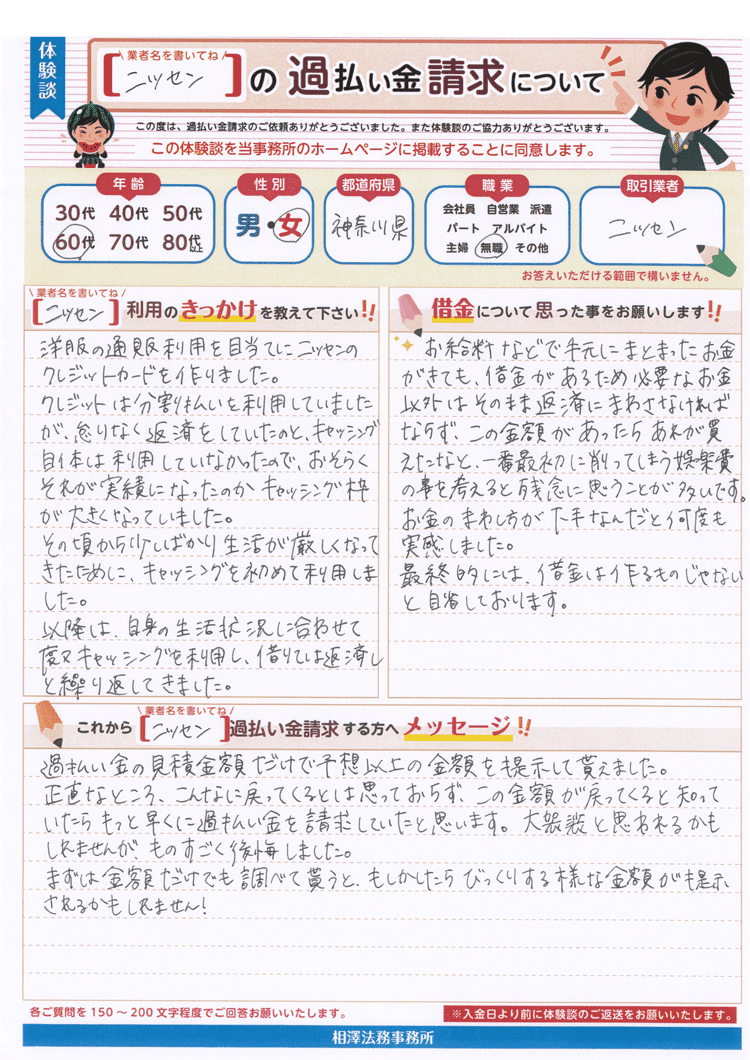 体験談
業者名を書いてね
[ニッセン]の過払い金請求について
この度は、過払い金請求のご依頼ありがとうございました。また体験談のご協力ありがとうございます。
この体験談を当事務所のホームページに掲載することに同意します。
年齢
30代 40代 50代
60代 70代 80代以上
性別
男・女
都道府県
神奈川県
職業
会社員 自営業 派遣
パート アルバイト
主婦 無職 その他
取引業者
ニッセン
お答えいただける範囲で構いません。
業者名を書いてね
[ニッセン]利用のきっかけを教えて下さい!!
洋服の通販利用を目当てにニッセンの
クレジットカードを作りました。
クレジットは分割払いを利用していました
が、怠りなく返済をしていたのと、キャッシング
自体は利用していなかったので、おそらく
それが実績になったのかキャッシング枠
が大きくなっていました。
その頃から少しばかり生活が厳しくなって
きたために、キャッシングを初めて利用しま
した。
以降は、自身の生活状況に合わせて
度々キャッシングを利用し、借りては返済し
と繰り返してきました。
借金について思った事をお願いします!!
お給料などで手元にまとまったお金
がきても、借金があるため必要なお金
以外はそのまま返済にまわさなければ
ならず、この金額があったらあれが買
えたなと、一番最初に削ってしまう娯楽費
の事を考えると残念に思うことが多いです。
お金のまわし方が下手なんだと何度も
実感しました。
最終的には、借金は作るものじゃない
と自省しております。
業者名を書いてね
これから[ニッセン]過払い金請求する方へメッセージ!!
過払い金の見積金額だけで予想以上の金額を提示して貰えました。
正直なところ、こんなに戻ってくるとは思っておらず、この金額が戻ってくると知って
いたらもっと早くに過払い金を請求していたと思います。大袈裟と思われるかも
しれませんが、ものすごく後悔しました。
まずは金額だけでも調べて貰うと、もしかしたらびっくりする様な金額が提示
されるかもしれません!
各ご質問を150〜200文字程度でご回答お願いいたします。
※入金日より前に体験談のご返送をお願いいたします。
相澤法務事務所